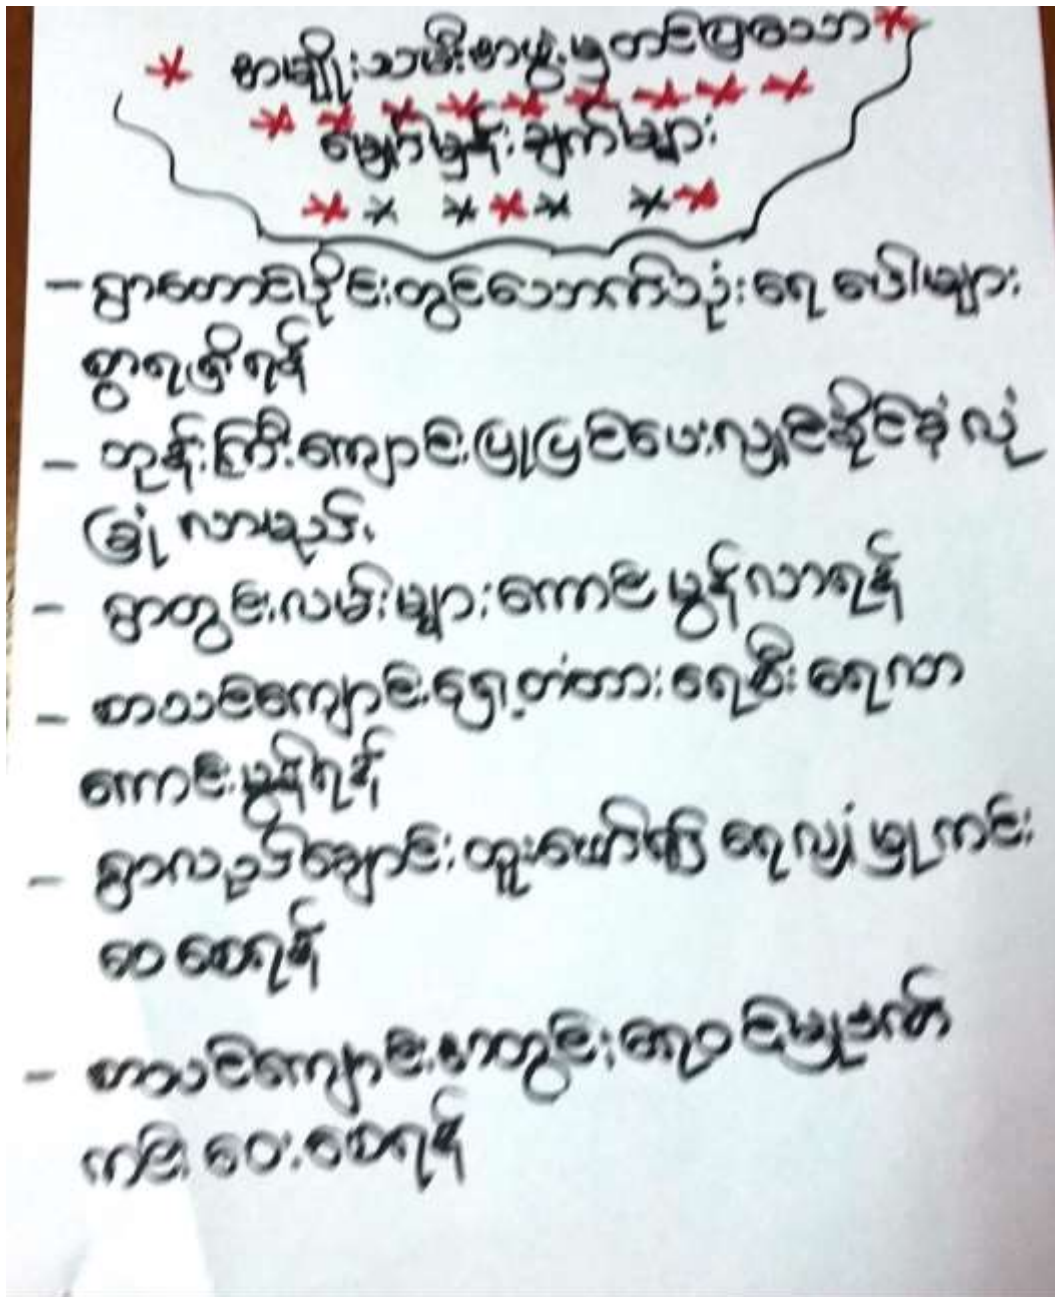 အမျိုးသမီးအဖွဲ့မှတင်ပြသော
မျှော်မှန်းချက်များ
– ရွာတောင်ပိုင်းတွင်သောက်သုံးရေ ပေါများ
စွာရရှိရန်
– ဘုန်းကြီးကျောင်းပြုပြင်ပေးလျှင်ခိုင်ခံ့ လုံ
ခြုံ လာမည်။
– ရွာတွင်းလမ်းများကောင်းမွန်လာရန်
– စာသင်ကျောင်းရှေ့တံတားရေစီးရေလာ
ကောင်းမွန်ရန်
– ရွာလည်ချောင်းတူးဖော်၍ ရေလျှံမှုကင်း
ဝေးစေရန်
– စာသင်ကျောင်းအတွင်းရေဝင်မှုဒဏ်
ကင်းဝေးစေရန်